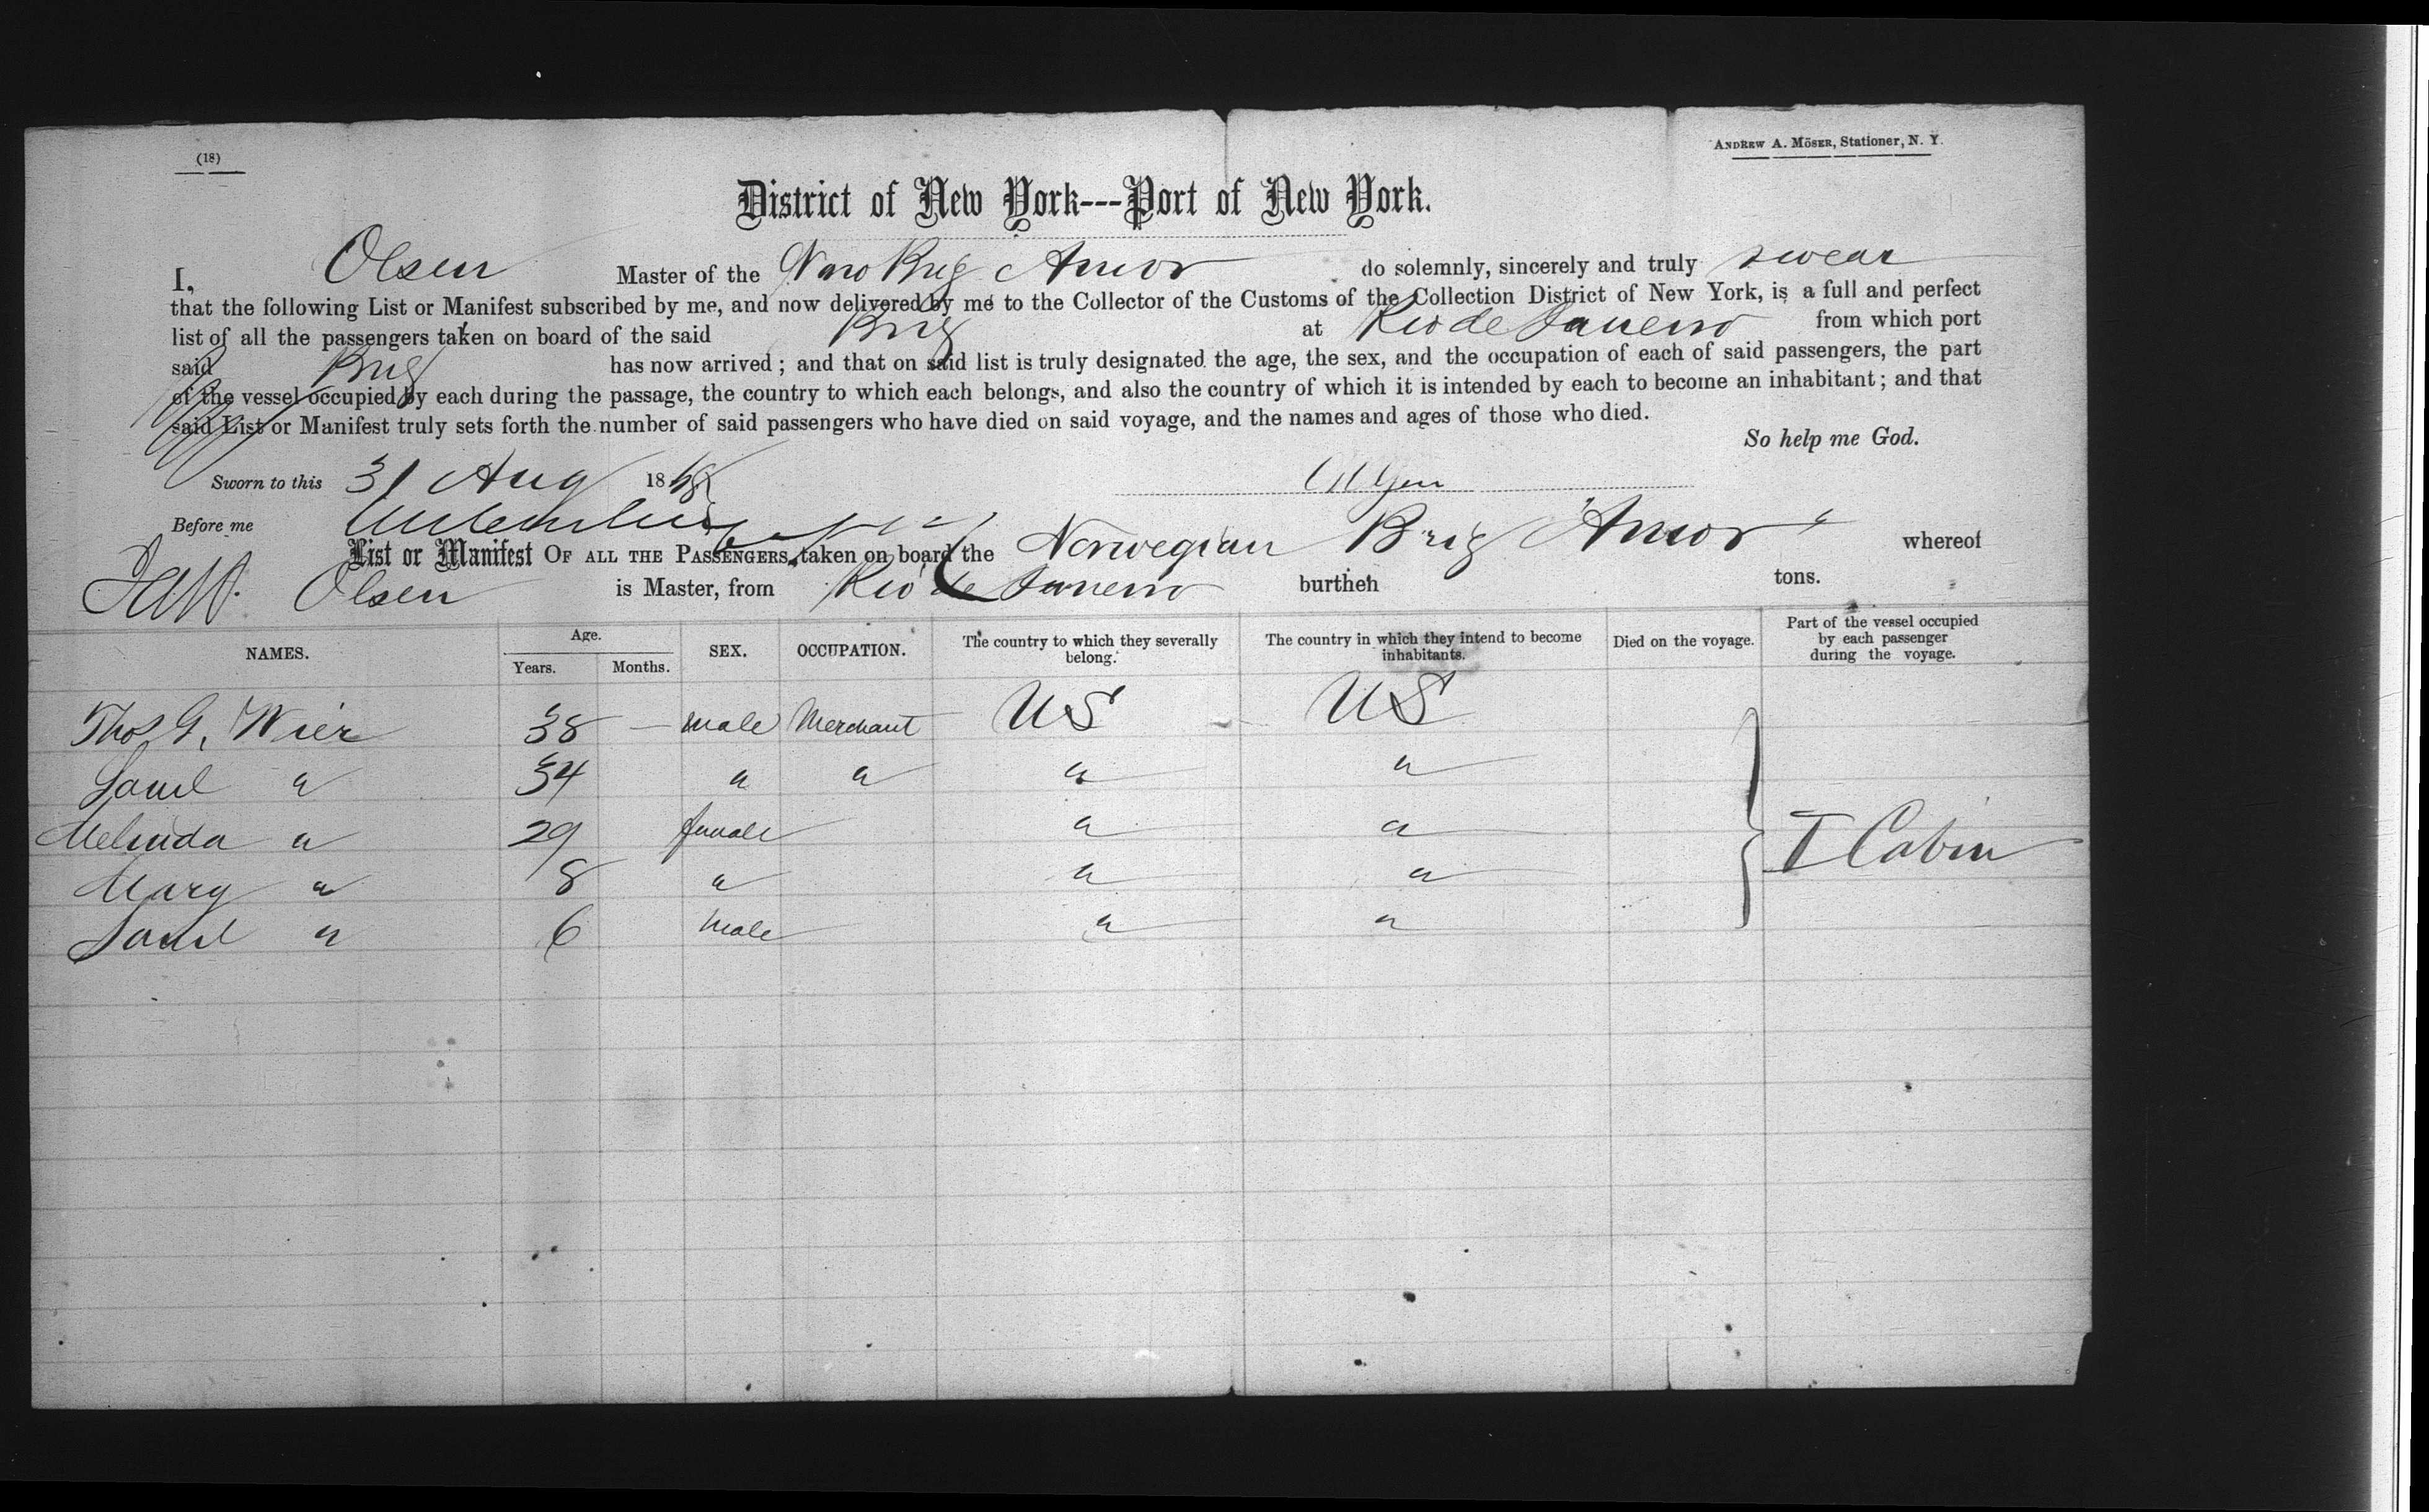 (18)
ANDREW A. MÖSER, Stationer, N. Y.
District of New York---Port of New York.
I, Olsen Master of the Nwo Brig Amor do solemnly, sincerely and truly swear
that the following List or Manifest subscribed by me, and now delivered by me to the Collector of the Customs of the Collection District of New York, is a full and perfect
list of all the passengers taken on board of the said Brig at Rio de Janeiro from which port
said Brig has now arrived ; and that on said list is truly designated the age, the sex, and the occupation of each of said passengers, the part
of the vessel occupied by each during the passage, the country to which each belongs, and also the country of which it is intended by each to become an inhabitant ; and that
said List or Manifest truly sets forth the number of said passengers who have died on said voyage, and the names and ages of those who died.
So help me God.
Sworn to this 31 Aug 1868
Before me
List or Manifest OF ALL THE PASSENGERS taken on board the Norwegian Brig "Amor" whereof
Olsen is Master, from Rio de Janeiro burthen tons.
NAMES. Age. Years. Months. SEX. OCCUPATION. The country to which they severally belong. The country in which they intend to become inhabitants. Died on the voyage. Part of the vessel occupied by each passenger during the voyage.
Thos G. Wier 38 — male Merchant US US
Saml " 34 " " " "
Melinda " 29 female " "
Mary " 8 " " "
Saml " 6 male " "
I Cabin